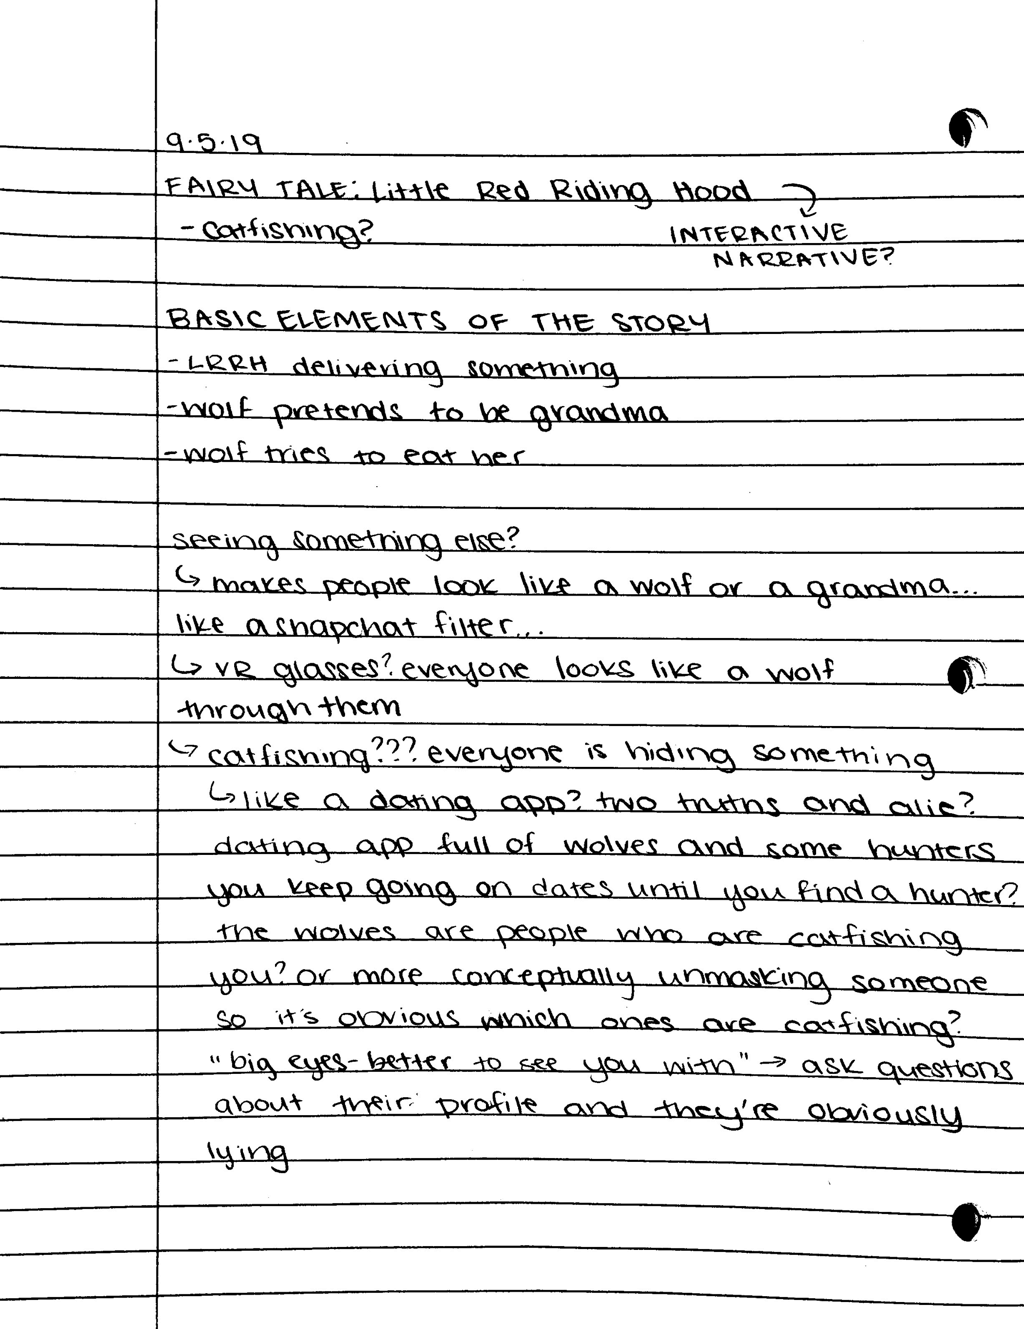 9.5.19
FAIRY TALE: Little Red Riding Hood
- catfishing?
INTERACTIVE
NARRATIVE?
BASIC ELEMENTS OF THE STORY
-LRRH delivering something
-wolf pretends to be grandma
-wolf tries to eat her
seeing something else?
↳ makes people look like a wolf or a grandma...
like a snapchat filter...
↳ VR glasses? everyone looks like a wolf
through them
↳ catfishing??? everyone is hiding something
↳ like a dating app? two truths and a lie?
dating app full of wolves and some hunters
you keep going on dates until you find a hunter?
the wolves are people who are catfishing
you? or more conceptually unmasking someone
so it's obvious which ones are catfishing?
"big eyes-better to see you with" → ask questions
about their profile and they're obviously
lying